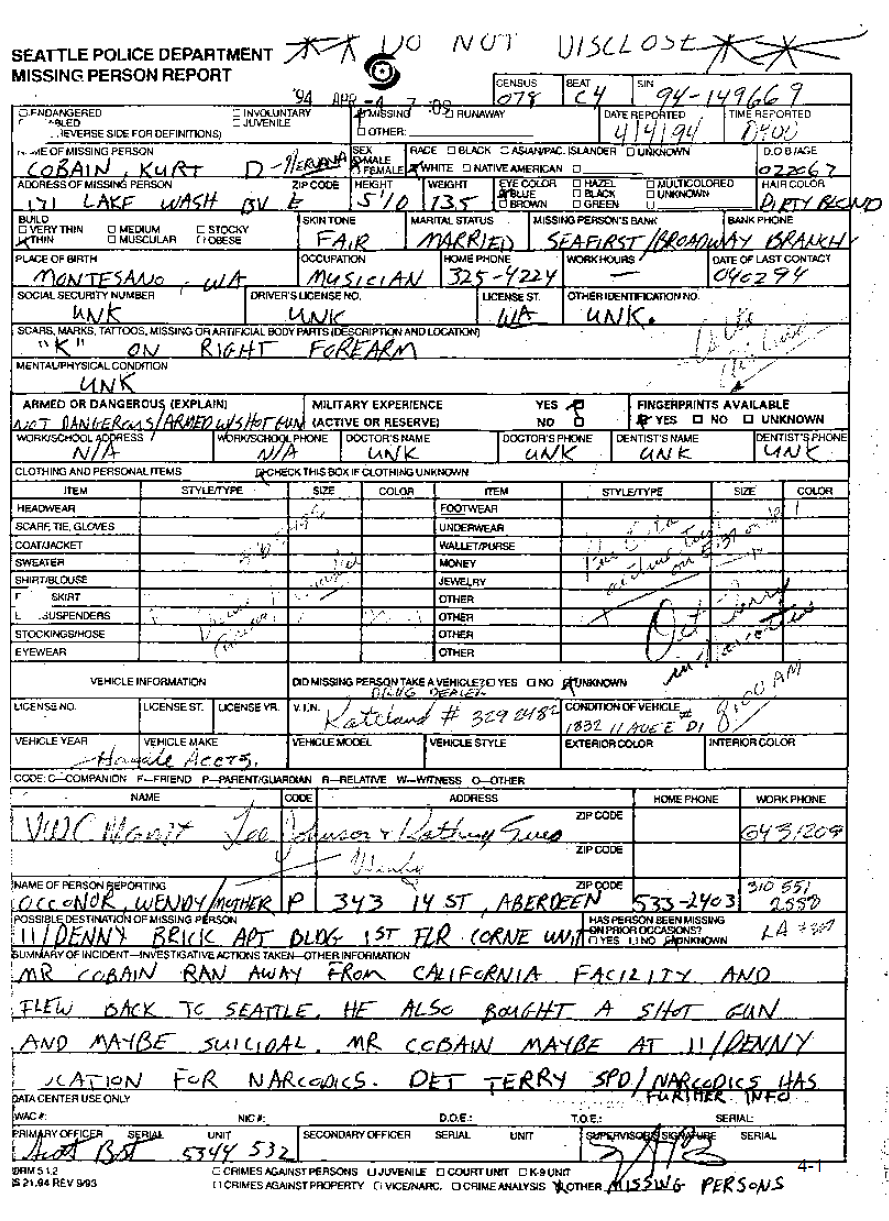 ** DO NOT DISCLOSE **
SEATTLE POLICE DEPARTMENT
MISSING PERSON REPORT
'94 APR -4
CENSUS 078 BEAT C4 SIN 94-149669
ENDANGERED INVOLUNTARY MISSING RUNAWAY DATE REPORTED 4/4/94 TIME REPORTED
JUVENILE OTHER:
REVERSE SIDE FOR DEFINITIONS)
NAME OF MISSING PERSON SEX MALE FEMALE RACE BLACK ASIAN/PAC. ISLANDER UNKNOWN D.O.B/AGE
COBAIN, KURT D - NERVANA WHITE NATIVE AMERICAN 022067
ADDRESS OF MISSING PERSON ZIP CODE HEIGHT WEIGHT EYE COLOR HAZEL MULTICOLORED HAIR COLOR
171 LAKE WASH BV E 5'10 135 BLUE BLACK UNKNOWN DIRTY BLOND
BROWN GREEN
BUILD SKIN TONE MARITAL STATUS MISSING PERSON'S BANK BANK PHONE
VERY THIN MEDIUM STOCKY FAIR MARRIED SEAFIRST/BROADWAY BRANCH
THIN MUSCULAR OBESE
PLACE OF BIRTH OCCUPATION HOME PHONE WORK HOURS DATE OF LAST CONTACT
MONTESANO, WA MUSICIAN 325-4224 — 040294
SOCIAL SECURITY NUMBER DRIVER'S LICENSE NO. LICENSE ST. OTHER IDENTIFICATION NO.
UNK UNK WA UNK.
SCARS, MARKS, TATTOOS, MISSING OR ARTIFICIAL BODY PARTS (DESCRIPTION AND LOCATION)
"K" ON RIGHT FOREARM
MENTAL/PHYSICAL CONDITION
UNK
ARMED OR DANGEROUS (EXPLAIN) MILITARY EXPERIENCE YES FINGERPRINTS AVAILABLE
NOT DANGEROUS/ARMED W/SHOT GUN (ACTIVE OR RESERVE) NO YES NO UNKNOWN
WORK/SCHOOL ADDRESS WORK/SCHOOL PHONE DOCTOR'S NAME DOCTOR'S PHONE DENTIST'S NAME DENTIST'S PHONE
N/A N/A UNK UNK UNK UNK
CLOTHING AND PERSONAL ITEMS CHECK THIS BOX IF CLOTHING UNKNOWN
ITEM STYLE/TYPE SIZE COLOR ITEM STYLE/TYPE SIZE COLOR
HEADWEAR FOOTWEAR
SCARF, TIE, GLOVES UNDERWEAR
COAT/JACKET WALLET/PURSE
SWEATER MONEY
SHIRT/BLOUSE JEWELRY
SKIRT OTHER
SUSPENDERS OTHER
STOCKINGS/HOSE OTHER
EYEWEAR OTHER
Det Terry
8:00 AM
VEHICLE INFORMATION DID MISSING PERSON TAKE A VEHICLE? YES NO UNKNOWN
DRUG DEALER
LICENSE NO. LICENSE ST. LICENSE YR. V.I.N. CONDITION OF VEHICLE
# 329 2482 1832 11 AVE E # D1
VEHICLE YEAR VEHICLE MAKE VEHICLE MODEL VEHICLE STYLE EXTERIOR COLOR INTERIOR COLOR
CODE: C—COMPANION F—FRIEND P—PARENT/GUARDIAN R—RELATIVE W—WITNESS O—OTHER
NAME CODE ADDRESS HOME PHONE WORK PHONE
ZIP CODE
Johnson + 6431209
ZIP CODE
Wendy
NAME OF PERSON REPORTING ZIP CODE 310 551
OCCONOR, WENDY/MOTHER P 343 14 ST, ABERDEEN 533-2403 2558
POSSIBLE DESTINATION OF MISSING PERSON HAS PERSON BEEN MISSING ON PRIOR OCCASIONS?
11/DENNY BRICK APT BLDG 1ST FLR CORNE UNIT YES NO UNKNOWN LA
SUMMARY OF INCIDENT—INVESTIGATIVE ACTIONS TAKEN—OTHER INFORMATION
MR COBAIN RAN AWAY FROM CALIFORNIA FACILITY AND
FLEW BACK TO SEATTLE. HE ALSO BOUGHT A SHOT GUN
AND MAYBE SUICIDAL. MR COBAIN MAYBE AT 11/DENNY
LOCATION FOR NARCODICS. DET TERRY SPD/NARCODICS HAS
FURTHER INFO
DATA CENTER USE ONLY
WAC #: NIC #: D.O.E.: T.O.E.: SERIAL:
PRIMARY OFFICER SERIAL UNIT SECONDARY OFFICER SERIAL UNIT SUPERVISOR'S SIGNATURE SERIAL
5344 532
4-1
CRIMES AGAINST PERSONS JUVENILE COURT UNIT K-9 UNIT
S 21.94 REV 9/93 CRIMES AGAINST PROPERTY VICE/NARC. CRIME ANALYSIS OTHER MISSING PERSONS